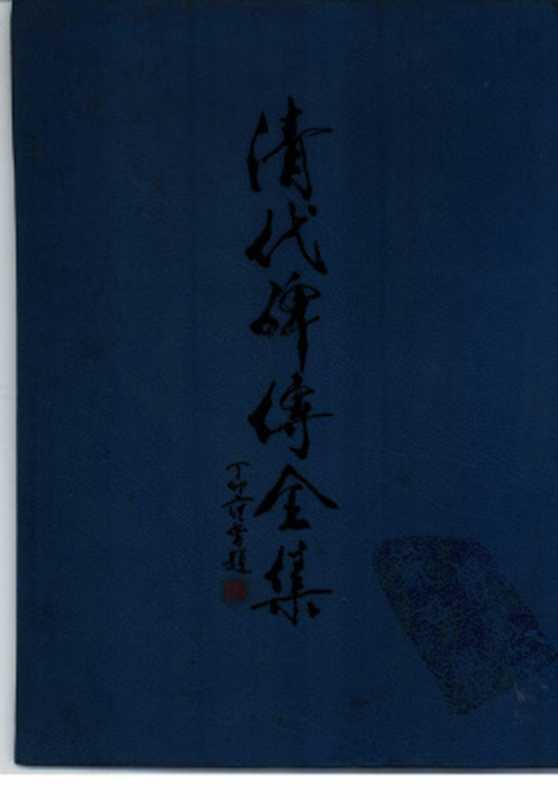 清代碑傳全集
丁卯 題